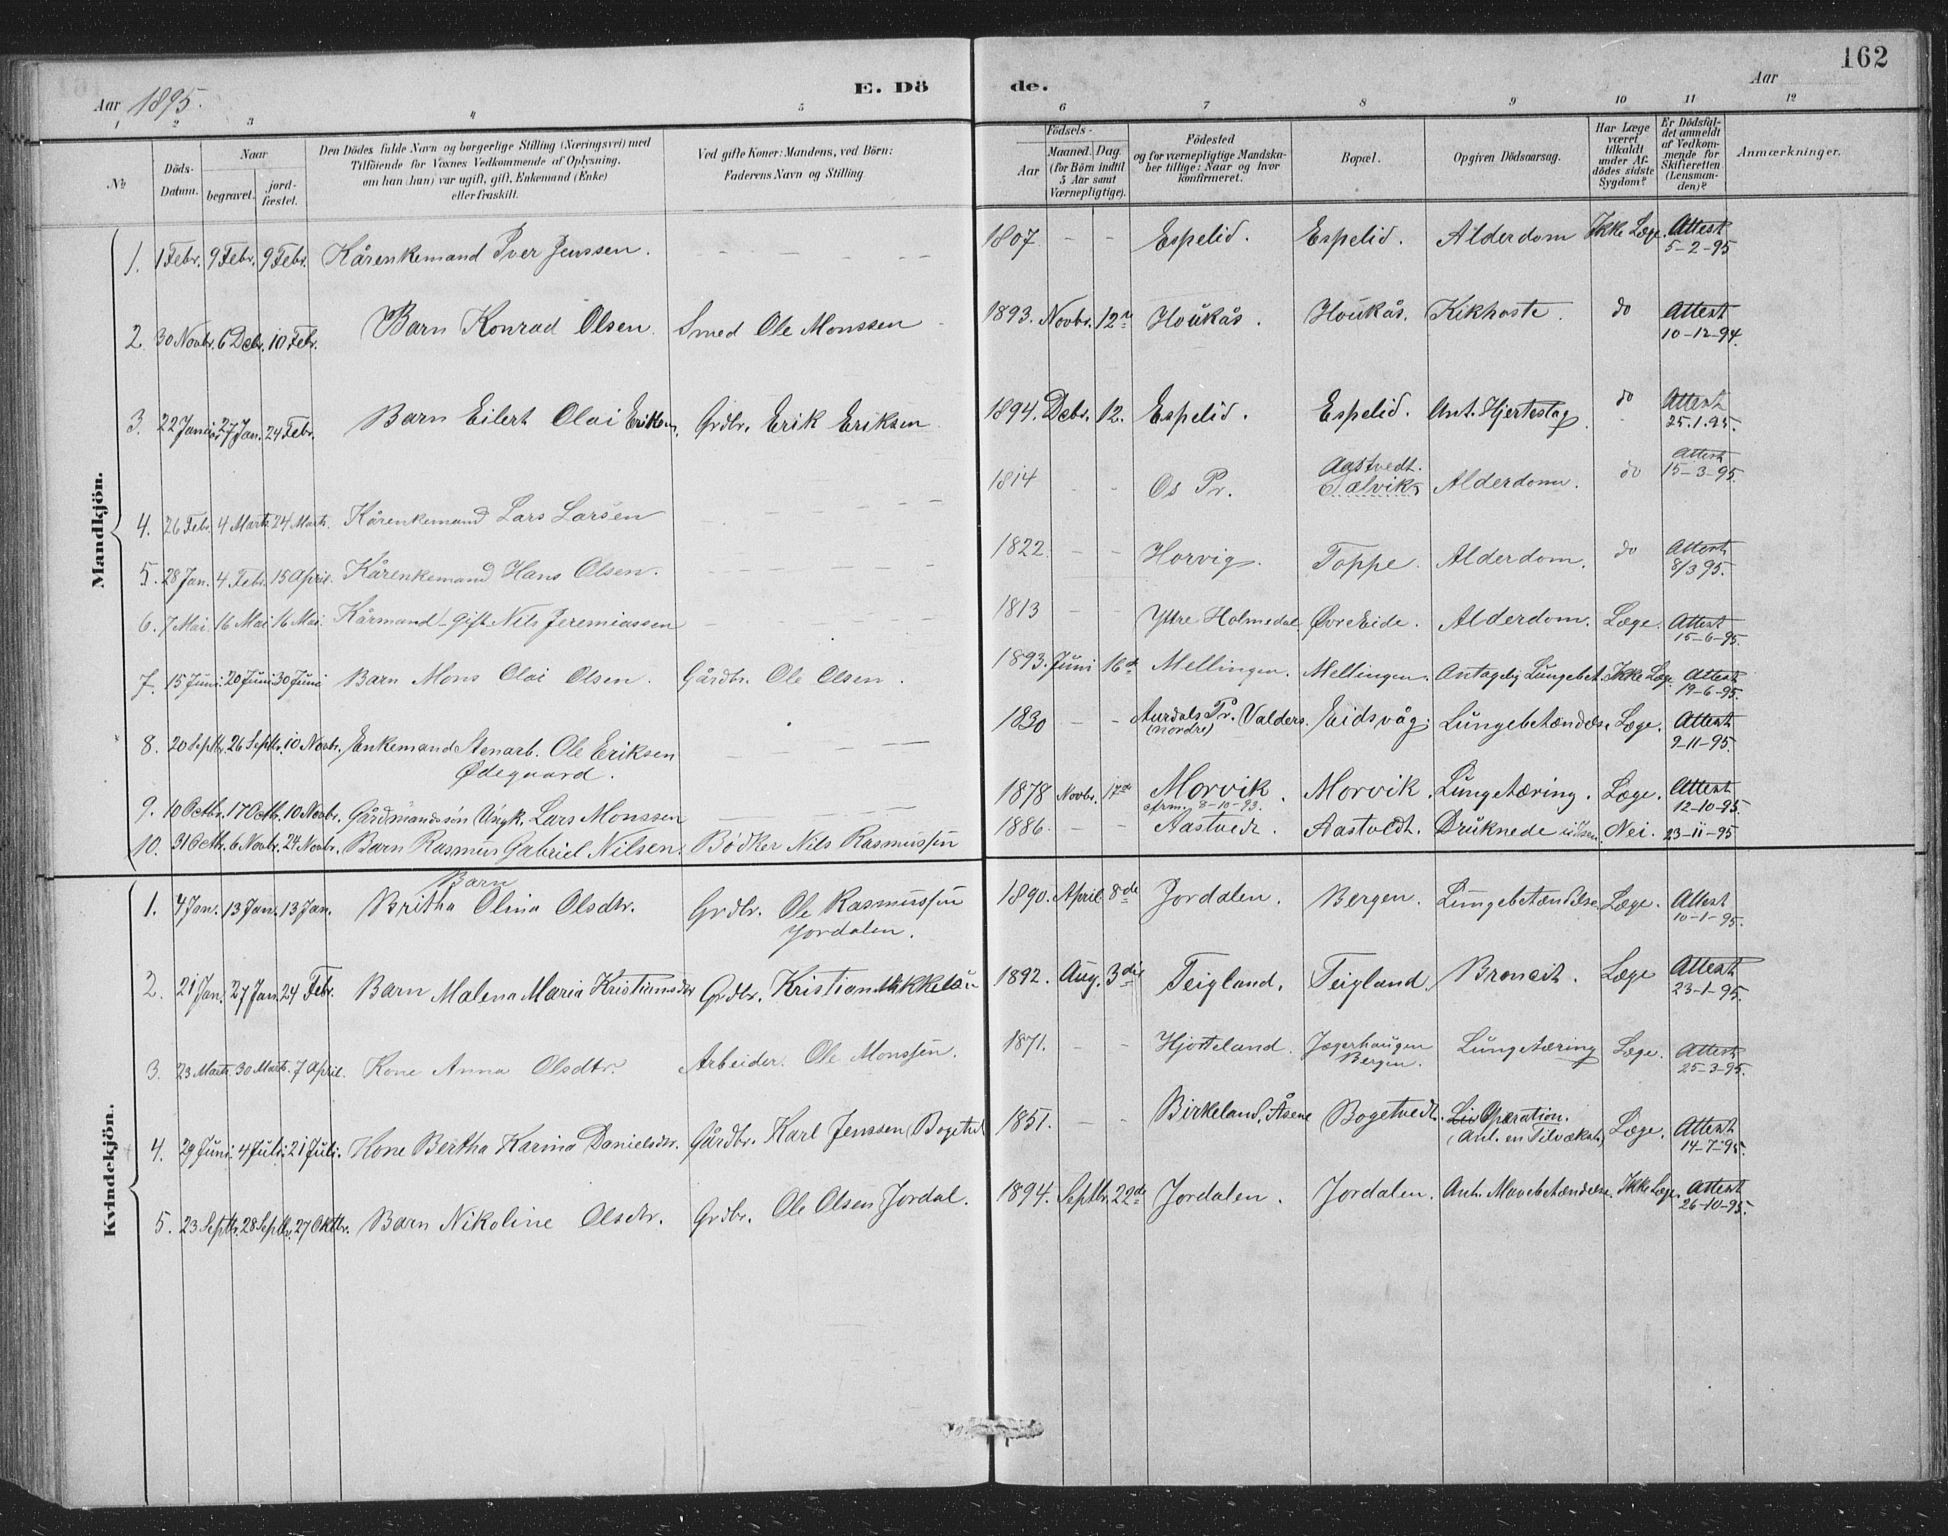 162
Aar 1895. E. Dö de. Aar
1 2 3 4 5 6 7 8 9 10 11 12
No
Döds-Datum.
Naar
begravet.
jord-fæstet.
Den Dödes fulde Navn og borgerlige Stilling (Næringsvei) med
Tilföiende for Voxnes Vedkommende af Oplysning,
om han (hun) var ugift, gift, Enkemand (Enke)
eller fraskilt.
Ved gifte Koner: Mandens, ved Börn:
Faderens Navn og Stilling.
Födsels-
Aar
Maaned. Dag
(for Börn indtil
5 Aar samt
Værnepligtige).
Födested
og for værnepligtige Mandska-
ber tillige: Naar og hvor
konfirmeret.
Bopæl.
Opgiven Dödsaarsag.
Har Læge
været
tilkaldt
under Af-
dödes sidste
Sygdom?
Er Dödsfal-
det anmeldt
af Vedkom-
mende for
Skifteretten
(Lensman-
den)?
Anmærkninger.
Mandkjön.
1. 1 Febr. 9 Febr. 9 Febr. Kårenkemand Iver Jenssen. 1807 - - Espelid. Espelid. Alderdom Ikke Læge. Attest
5-2-95
2. 30 Novbr. 6 Debr. 10 Febr. Barn Konrad Olsen. Smed Ole Monssen 1893. Novbr. 12 Houkås. Houkås. Kikhoste. do Attest
10-12-94.
3. 22 Januar 27 Jan. 24 Febr. Barn Eilert Olai Eriksen. Grdbr. Erik Eriksen 1894. Debr. 12. Espelid. Espelid. Ant. Hjerteslag do Attest
25.1.95.
4. 26 Febr. 4 Marts 24 Marts. Kårenkemand Lars Larsen 1814 - - Os Pr. Aastvedt.
Salvik Alderdom. do Attest
15-3-95.
5. 28 Jan. 4 Febr. 15 April. Kårenkemand Hans Olsen. 1822. - - Horvig. Toppe. Alderdom. do Attest
8/3 95.
6. 7 Mai 16 Mai 16 Mai. Kårmand gift Nils Jeremiassen 1813 - - Yttre Holmedal Øvre Eide. Alderdom. Læge. Attest
15-6-95.
7. 15 Juni. 20 Juni 30 Juni Barn Mons Olai Olsen. Gårdbr. Ole Olsen. 1893. Juni 16de Mellingen. Mellingen. Antagelig Lungebet. Ikke Læge. Attest
19-6-95.
8. 20 Septbr. 26 Septbr. 10 Novbr. Enkemand Stenarb. Ole Eriksen
Ødegaard. 1830 - - Aurdals Pr. Valders.
(nordre) Eidsvåg. Lungebetændelse. Læge. Attest
9-11-95.
9. 10 Octbr. 17 Octb. 10 Novbr. Gårdmandssøn Ungk. Lars Monssen 1878 Novbr. 17de Morvik.
8-10-93. Morvik. Lungetæring. Læge. Attest
12-10-95.
10. 31 Octb. 6 Novbr. 24 Novbr. Barn Rasmus Gabriel Nilsen. Bødker Nils Rasmussen 1886. - - Aastvedt. Aastvedt. Druknede Nei. 23-11-95
Kvindekjön.
1. 4 Jan. 13 Jan. 13 Jan. Barn
Britha Olina Olsdtr. Grdbr. Ole Rasmussen
Jordalen. 1890. April 8de Jordalen. Bergen. Lungebetændelse. Læge. Attest
10-1-95.
2. 21 Jan. 27 Jan. 24 Febr. Barn Malena Maria Kristiansdtr Grdbr. Kristian Mikkelsen 1892. Aug. 3die Teigland. Teigland. Bronsit. Læge Attest
23-1-95.
3. 23 Marts. 30 Marts. 7 April. Kone Anna Olsdtr. Arbeider. Ole Monssen. 1871. - - Hjorteland. Jægerhaugen
Bergen. Lungetæring Læge. Attest
25-3-95.
4. 29 Juni 4 Juli 21 Juli. Kone Bertha Karina Danielsdtr. Gårdbr. Karl Jenssen Bogetvd 1851. - - Birkeland, Åsene Bogetvedt. Liv Operation.
(Ant. en Tilvækst) Læge. Attest
14-7-95.
5. 23 Septbr. 28 Septbr. 27 Oktbr. Barn Nikoline Olsdtr. Grdbr. Ole Olsen Jordal. 1894. Septbr. 22de Jordalen. Jordalen. Ant. Mavebetændelse. Ikke Læge. Attest
26-10-95.